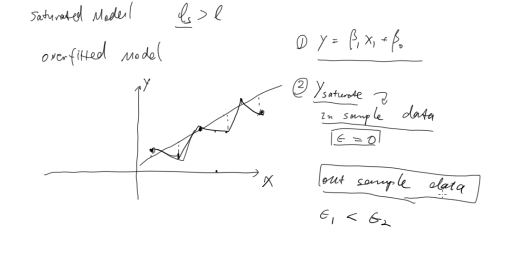 Saturated Model ℓs > ℓ
overfitted Model
Y
X
① y = β₁ x₁ + β₀
② Ysaturate
In sample data
ε = 0
out sample data
ε₁ < ε₂